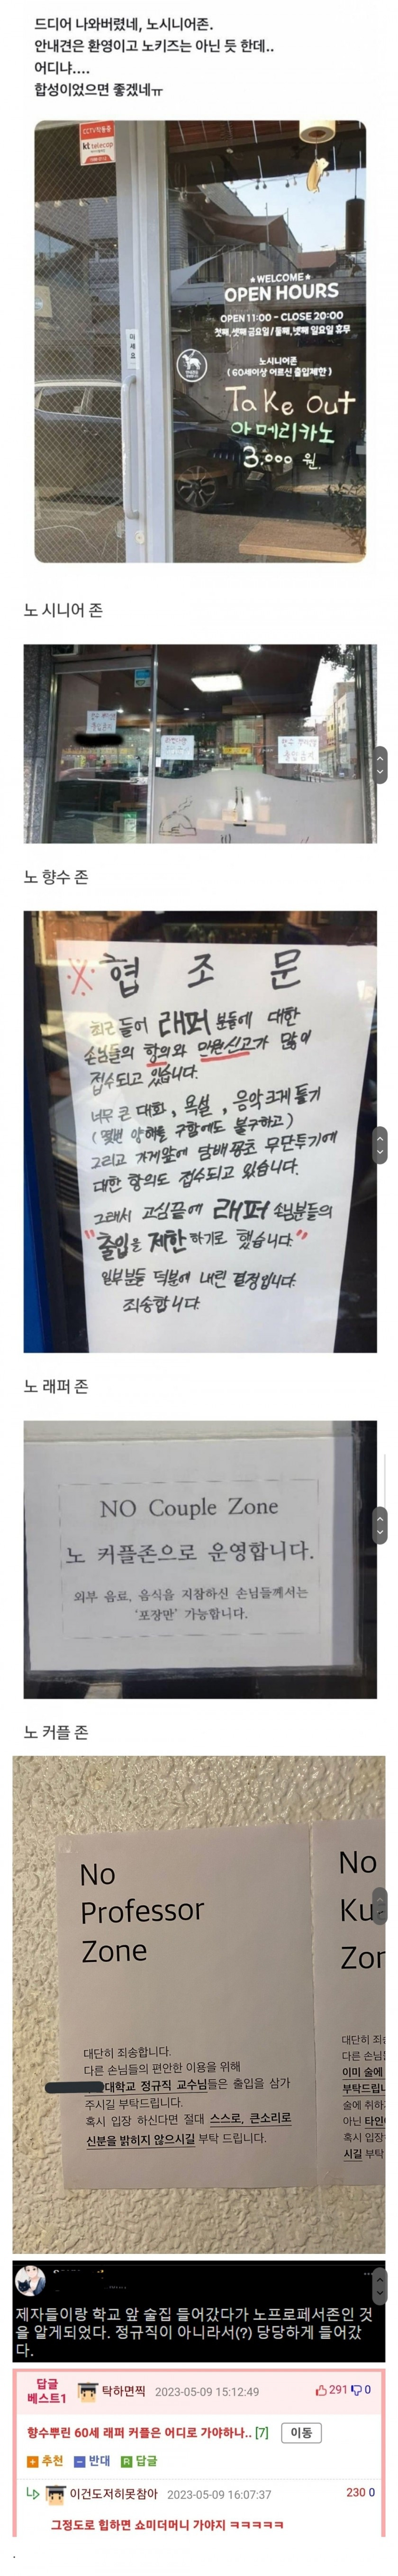 드디어 나와버렸네, 노시니어존.
안내견은 환영이고 노키즈는 아닌 듯 한데..
어디냐....
합성이었으면 좋겠네ㅠ
CCTV작동중
kt telecop
미세요
★WELCOME★
OPEN HOURS
OPEN 11:00 - CLOSE 20:00
첫째,셋째 금요일 / 둘째,넷째 일요일 휴무
노시니어존
( 60세이상 어르신 출입제한 )
Take Out
아메리카노
3,000 원.
노 시니어 존
노 향수 존
※ 협 조 문
최근 들어 래퍼 분들에 대한
손님들의 항의와 민원신고가 많이
접수되고 있습니다.
너무 큰 대화, 욕설, 음악크게 틀기
(몇번 양해를 구함에도 불구하고)
그리고 가게앞에 담배꽁초 무단투기에
대한 항의도 접수되고 있습니다.
그래서 고심끝에 래퍼 손님분들의
"출입을 제한하기로 했습니다."
일부분들 덕분에 내린 결정입니다.
죄송합니다.
노 래퍼 존
NO Couple Zone
노 커플존으로 운영합니다.
외부 음료, 음식을 지참하신 손님들께서는
'포장만' 가능합니다.
노 커플 존
No
Professor
Zone
대단히 죄송합니다.
다른 손님들의 편안한 이용을 위해
대학교 정규직 교수님들은 출입을 삼가
주시길 부탁드립니다.
혹시 입장 하신다면 절대 스스로, 큰소리로
신분을 밝히지 않으시길 부탁 드립니다.
No
Ku
Zor
대단히 죄송
다른 손님
이미 술에
부탁드립니
술에 취하
아닌 타인
혹시 입장
시길 부탁
제자들이랑 학교 앞 술집 들어갔다가 노프로페서존인 것
을 알게되었다. 정규직이 아니라서(?) 당당하게 들어갔
다.
답글
베스트1
탁하면찍 2023-05-09 15:12:49 291 0
향수뿌린 60세 래퍼 커플은 어디로 가야하나.. [7] 이동
추천 반대 답글
이건도저히못참아 2023-05-09 16:07:37 230 0
그정도로 힙하면 쇼미더머니 가야지 ㅋㅋㅋㅋㅋ
.